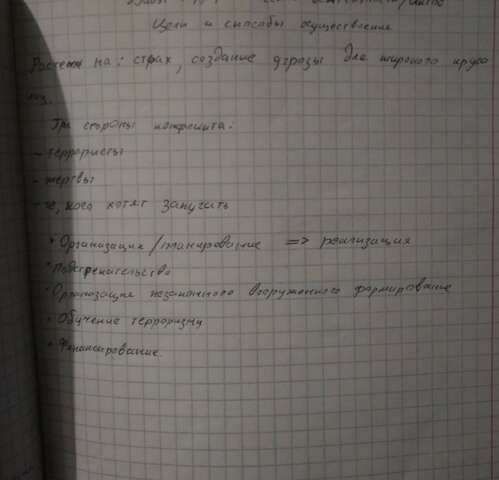 Цели и способы осуществления
Расчёт на: страх, создание угрозы для широкого круга
лиц.
Три стороны конфликта:
- террористы
- жертвы
- те, кого хотят запугать
• Организация/планирование => реализация
• Подстрекательство
• Организация незаконного вооружённого формирование
• Обучение терроризму
• Финансирование.